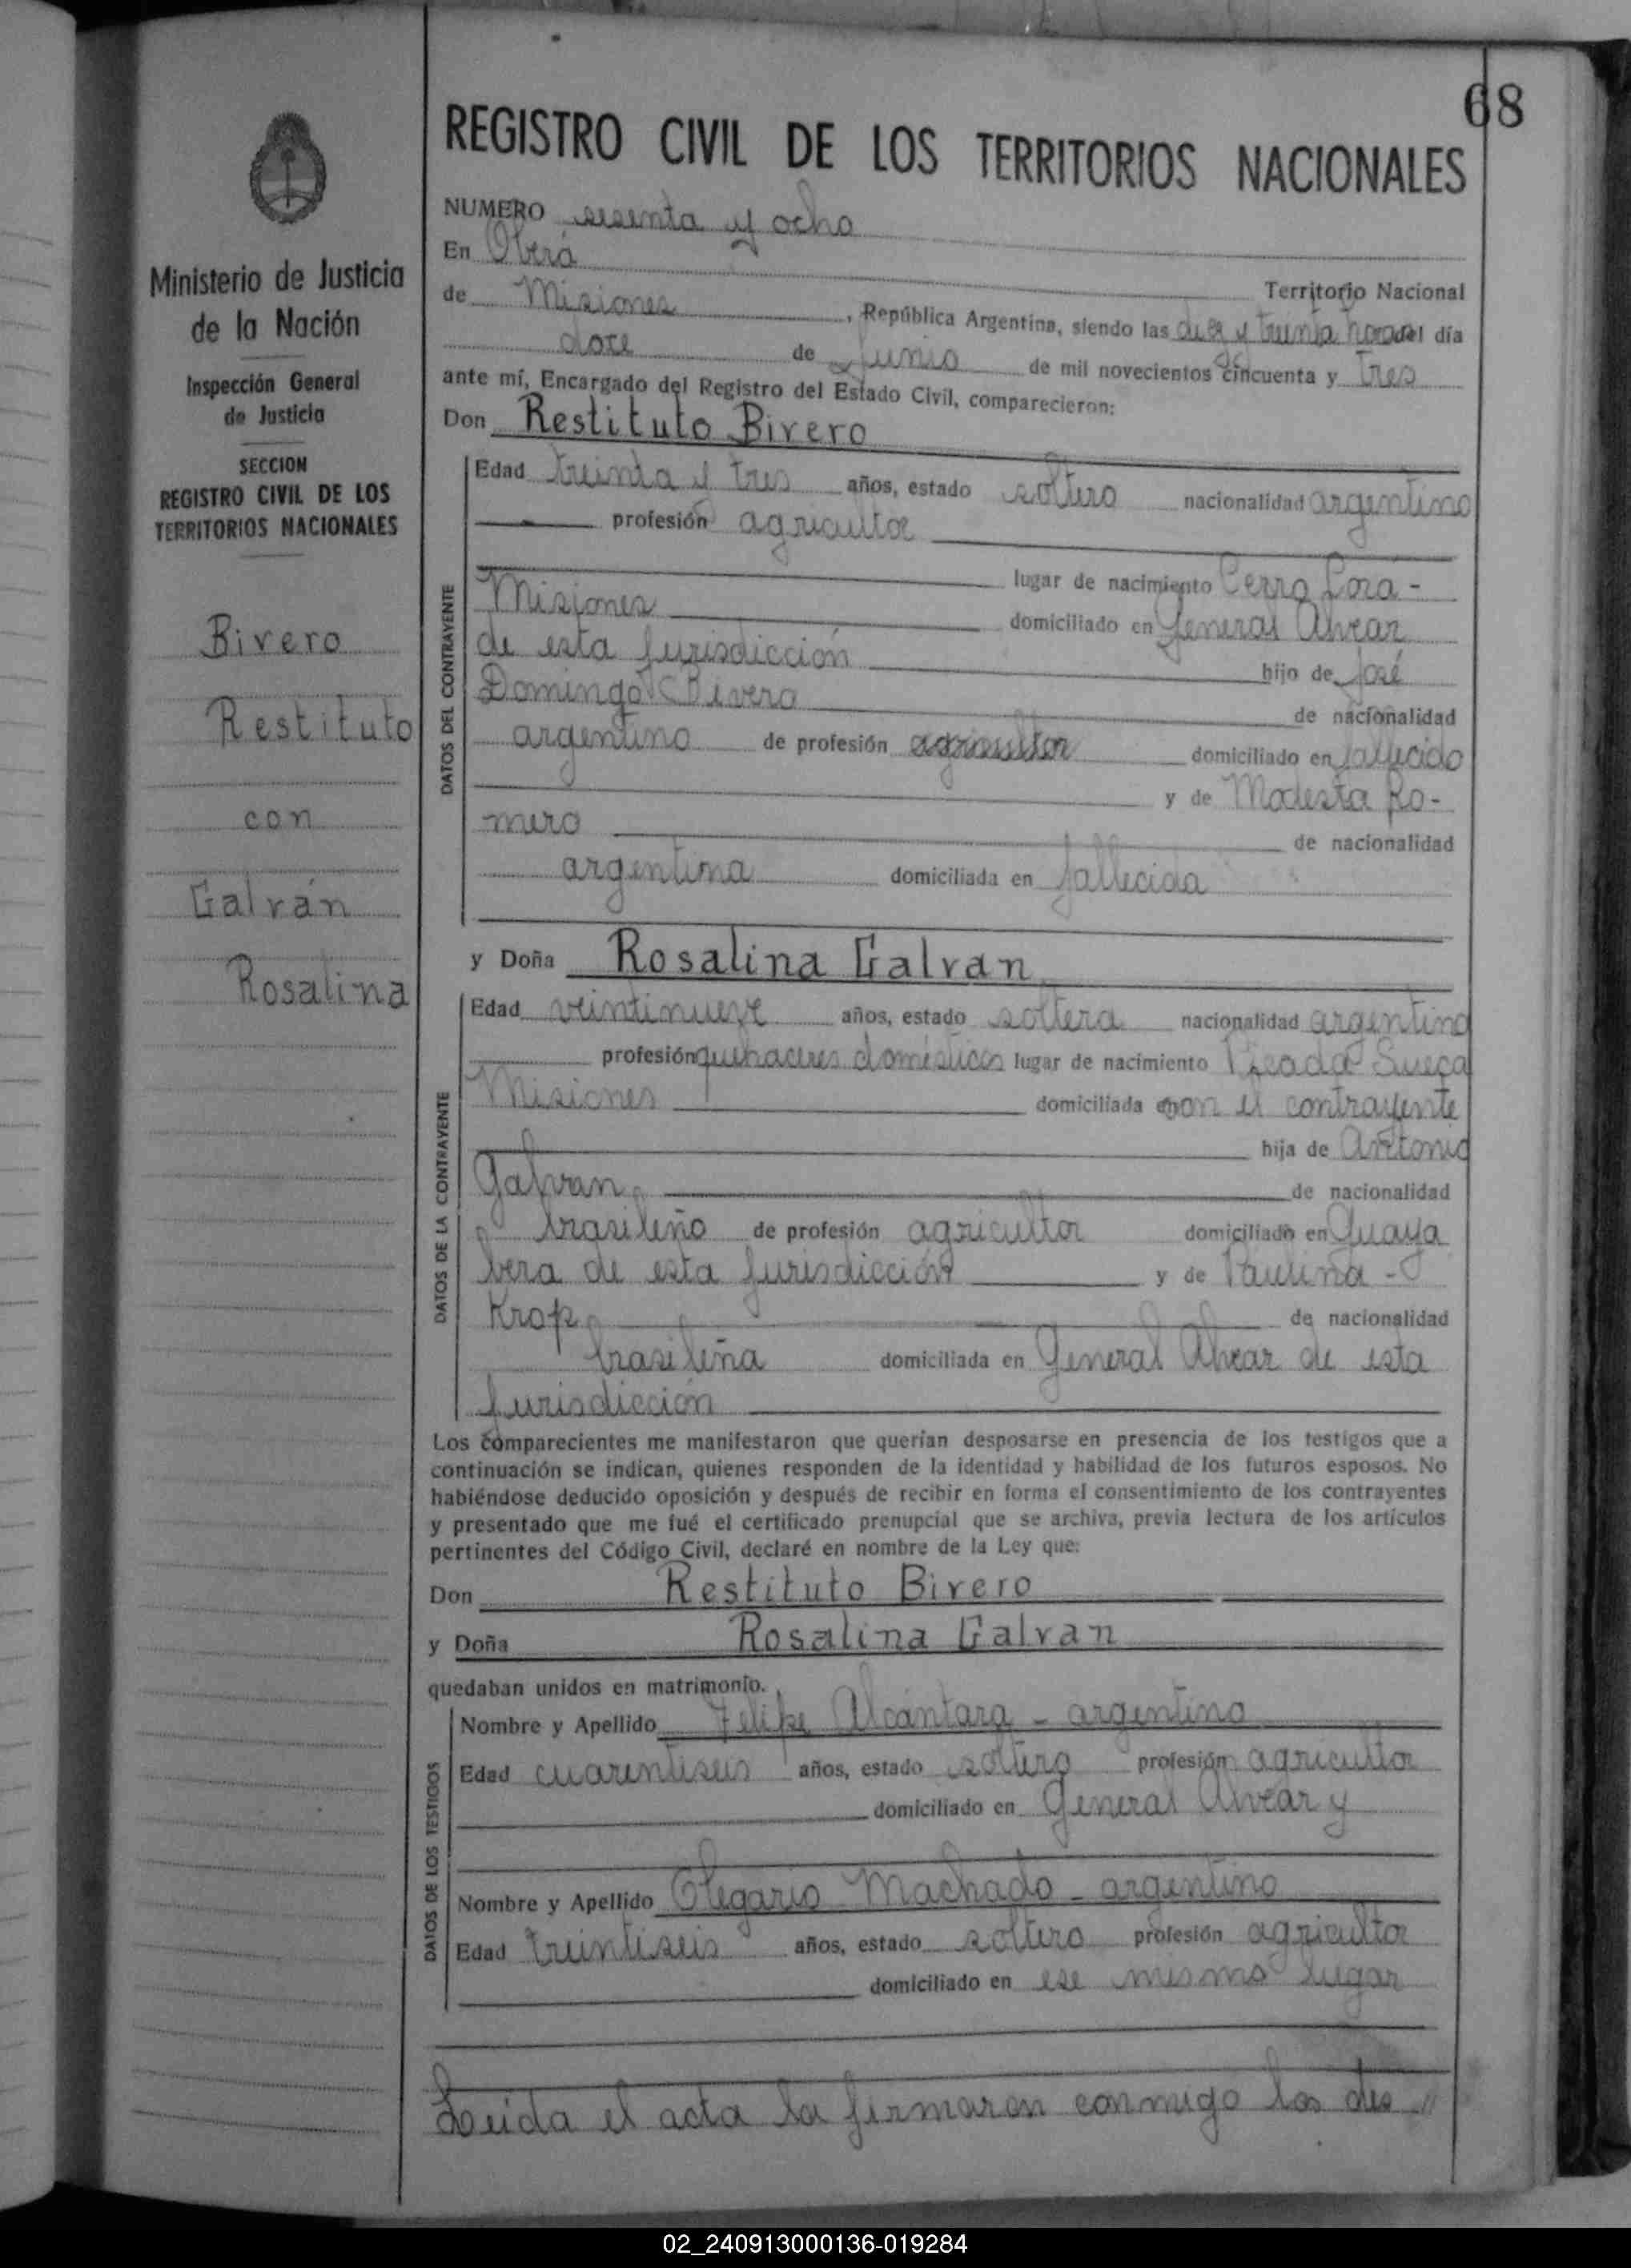 68
Ministerio de Justicia
de la Nación
Inspección General
de Justicia
SECCION
REGISTRO CIVIL DE LOS
TERRITORIOS NACIONALES
Bivero
Restituto
con
Galván
Rosalina
REGISTRO CIVIL DE LOS TERRITORIOS NACIONALES
NUMERO sesenta y ocho
En Oberá
Territorio Nacional
de Misiones, República Argentina, siendo las diez y treinta horas del día
doce de Junio de mil novecientos cincuenta y tres
ante mí, Encargado del Registro del Estado Civil, comparecieron:
Don Restituto Bivero
DATOS DEL CONTRAYENTE
Edad treinta y tres años, estado soltero nacionalidad argentino
profesión agricultor
lugar de nacimiento Cerro Corá -
Misiones domiciliado en General Alvear
de esta Jurisdicción hijo de José
Domingo Bivero de nacionalidad
argentino de profesión agricultor domiciliado en fallecido
y de Modesta Ro-
mero de nacionalidad
argentina domiciliada en fallecida
y Doña Rosalina Galvan
DATOS DE LA CONTRAYENTE
Edad veintinueve años, estado soltera nacionalidad argentina
profesión quehaceres domésticos lugar de nacimiento Picada Sueca
Misiones domiciliada con el contrayente
hija de Antonio
Galvan de nacionalidad
brasileño de profesión agricultor domiciliado en Guaya
bera de esta Jurisdicción y de Paulina -
Krop de nacionalidad
brasileña domiciliada en General Alvear de esta
Jurisdicción
Los comparecientes me manifestaron que querían desposarse en presencia de los testigos que a
continuación se indican, quienes responden de la identidad y habilidad de los futuros esposos. No
habiéndose deducido oposición y después de recibir en forma el consentimiento de los contrayentes
y presentado que me fué el certificado prenupcial que se archiva, previa lectura de los artículos
pertinentes del Código Civil, declaré en nombre de la Ley que:
Don Restituto Bivero
y Doña Rosalina Galvan
quedaban unidos en matrimonio.
DATOS DE LOS TESTIGOS
Nombre y Apellido Felipe Alcántara - argentino
Edad cuarentiseis años, estado soltero profesión agricultor
domiciliado en General Alvear y
Nombre y Apellido Olegario Machado - argentino
Edad treintiseis años, estado soltero profesión agricultor
domiciliado en ese mismo lugar
Leida el acta la firmaron conmigo los des //
02_240913000136-019284